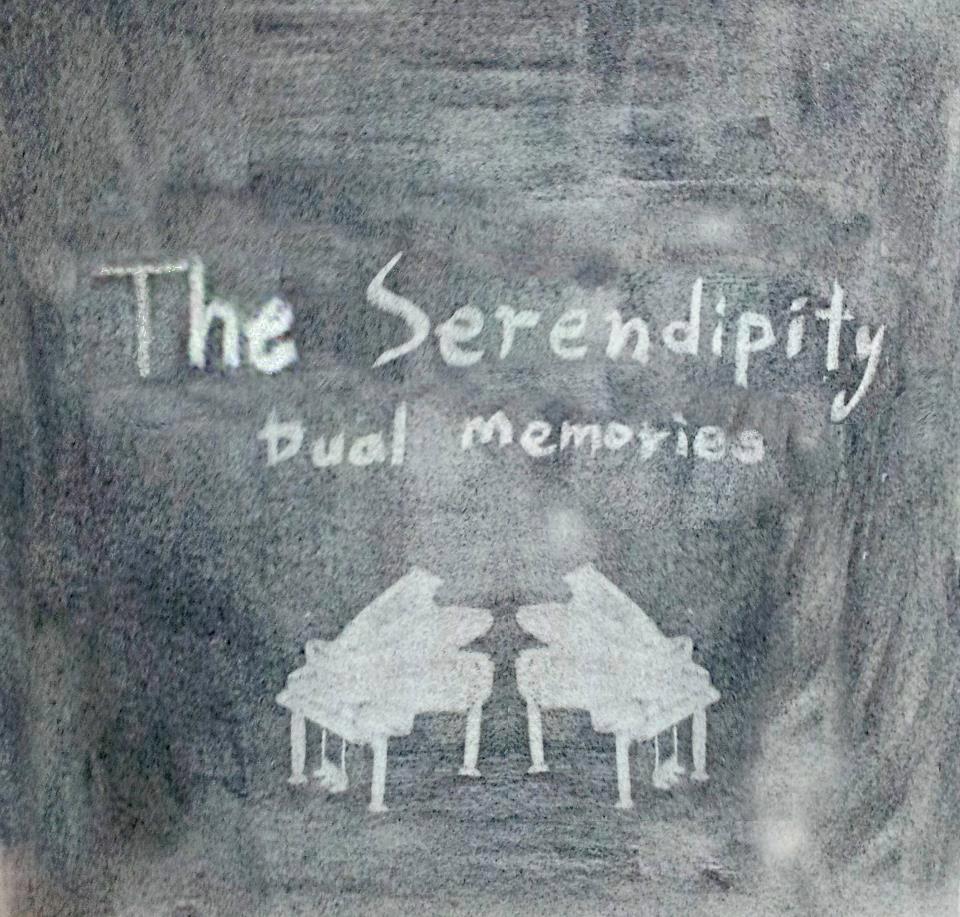 The Serendipity
Dual memories